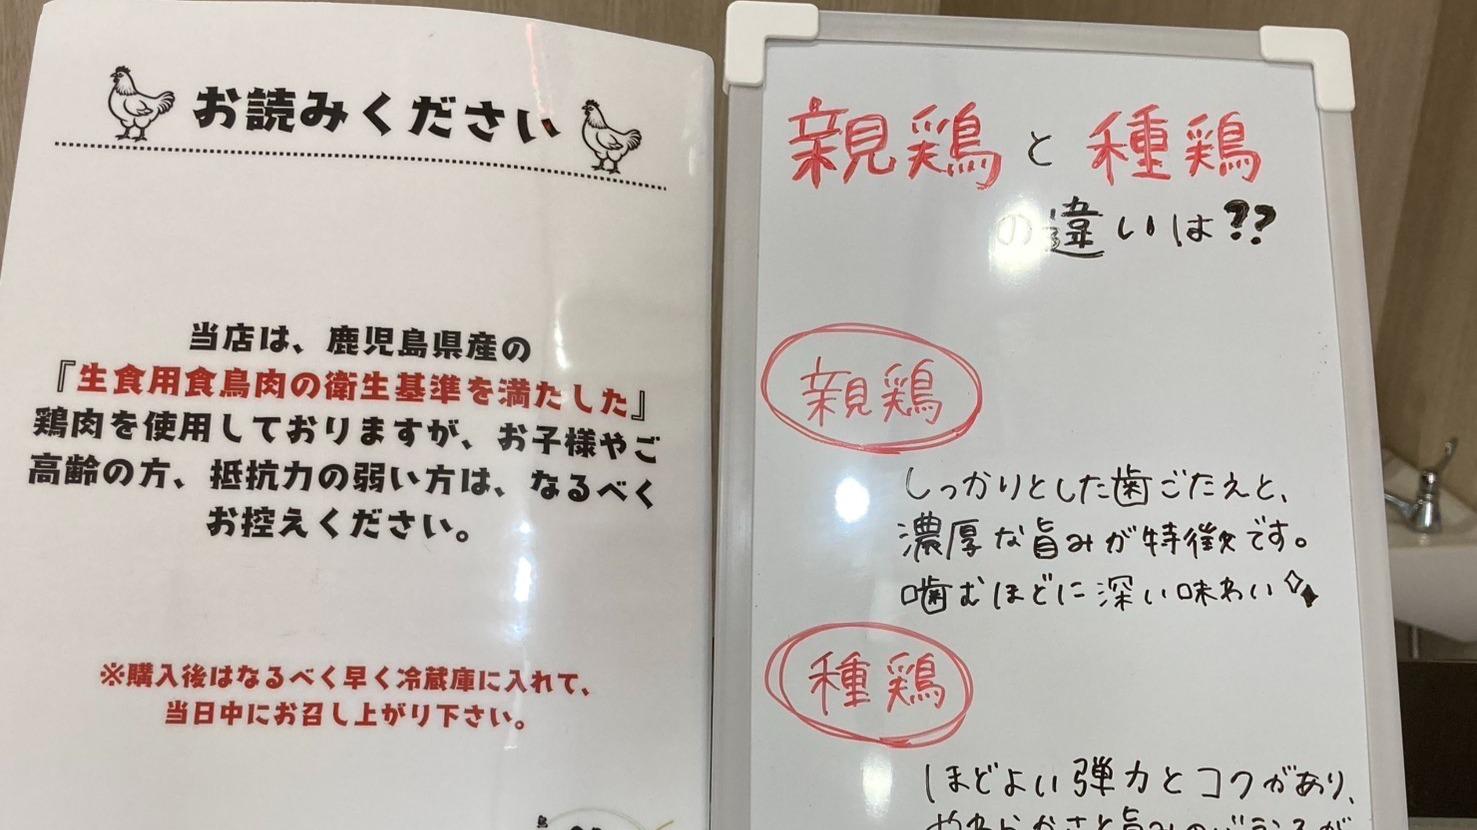 お読みください
当店は、鹿児島県産の
『生食用食鳥肉の衛生基準を満たした』
鶏肉を使用しておりますが、お子様やご
高齢の方、抵抗力の弱い方は、なるべく
お控えください。
※購入後はなるべく早く冷蔵庫に入れて、
当日中にお召し上がり下さい。
親鶏と種鶏
の違いは??
親鶏
しっかりとした歯ごたえと、
濃厚な旨みが特徴です。
噛むほどに深い味わい
種鶏
ほどよい弾力とコクがあり、